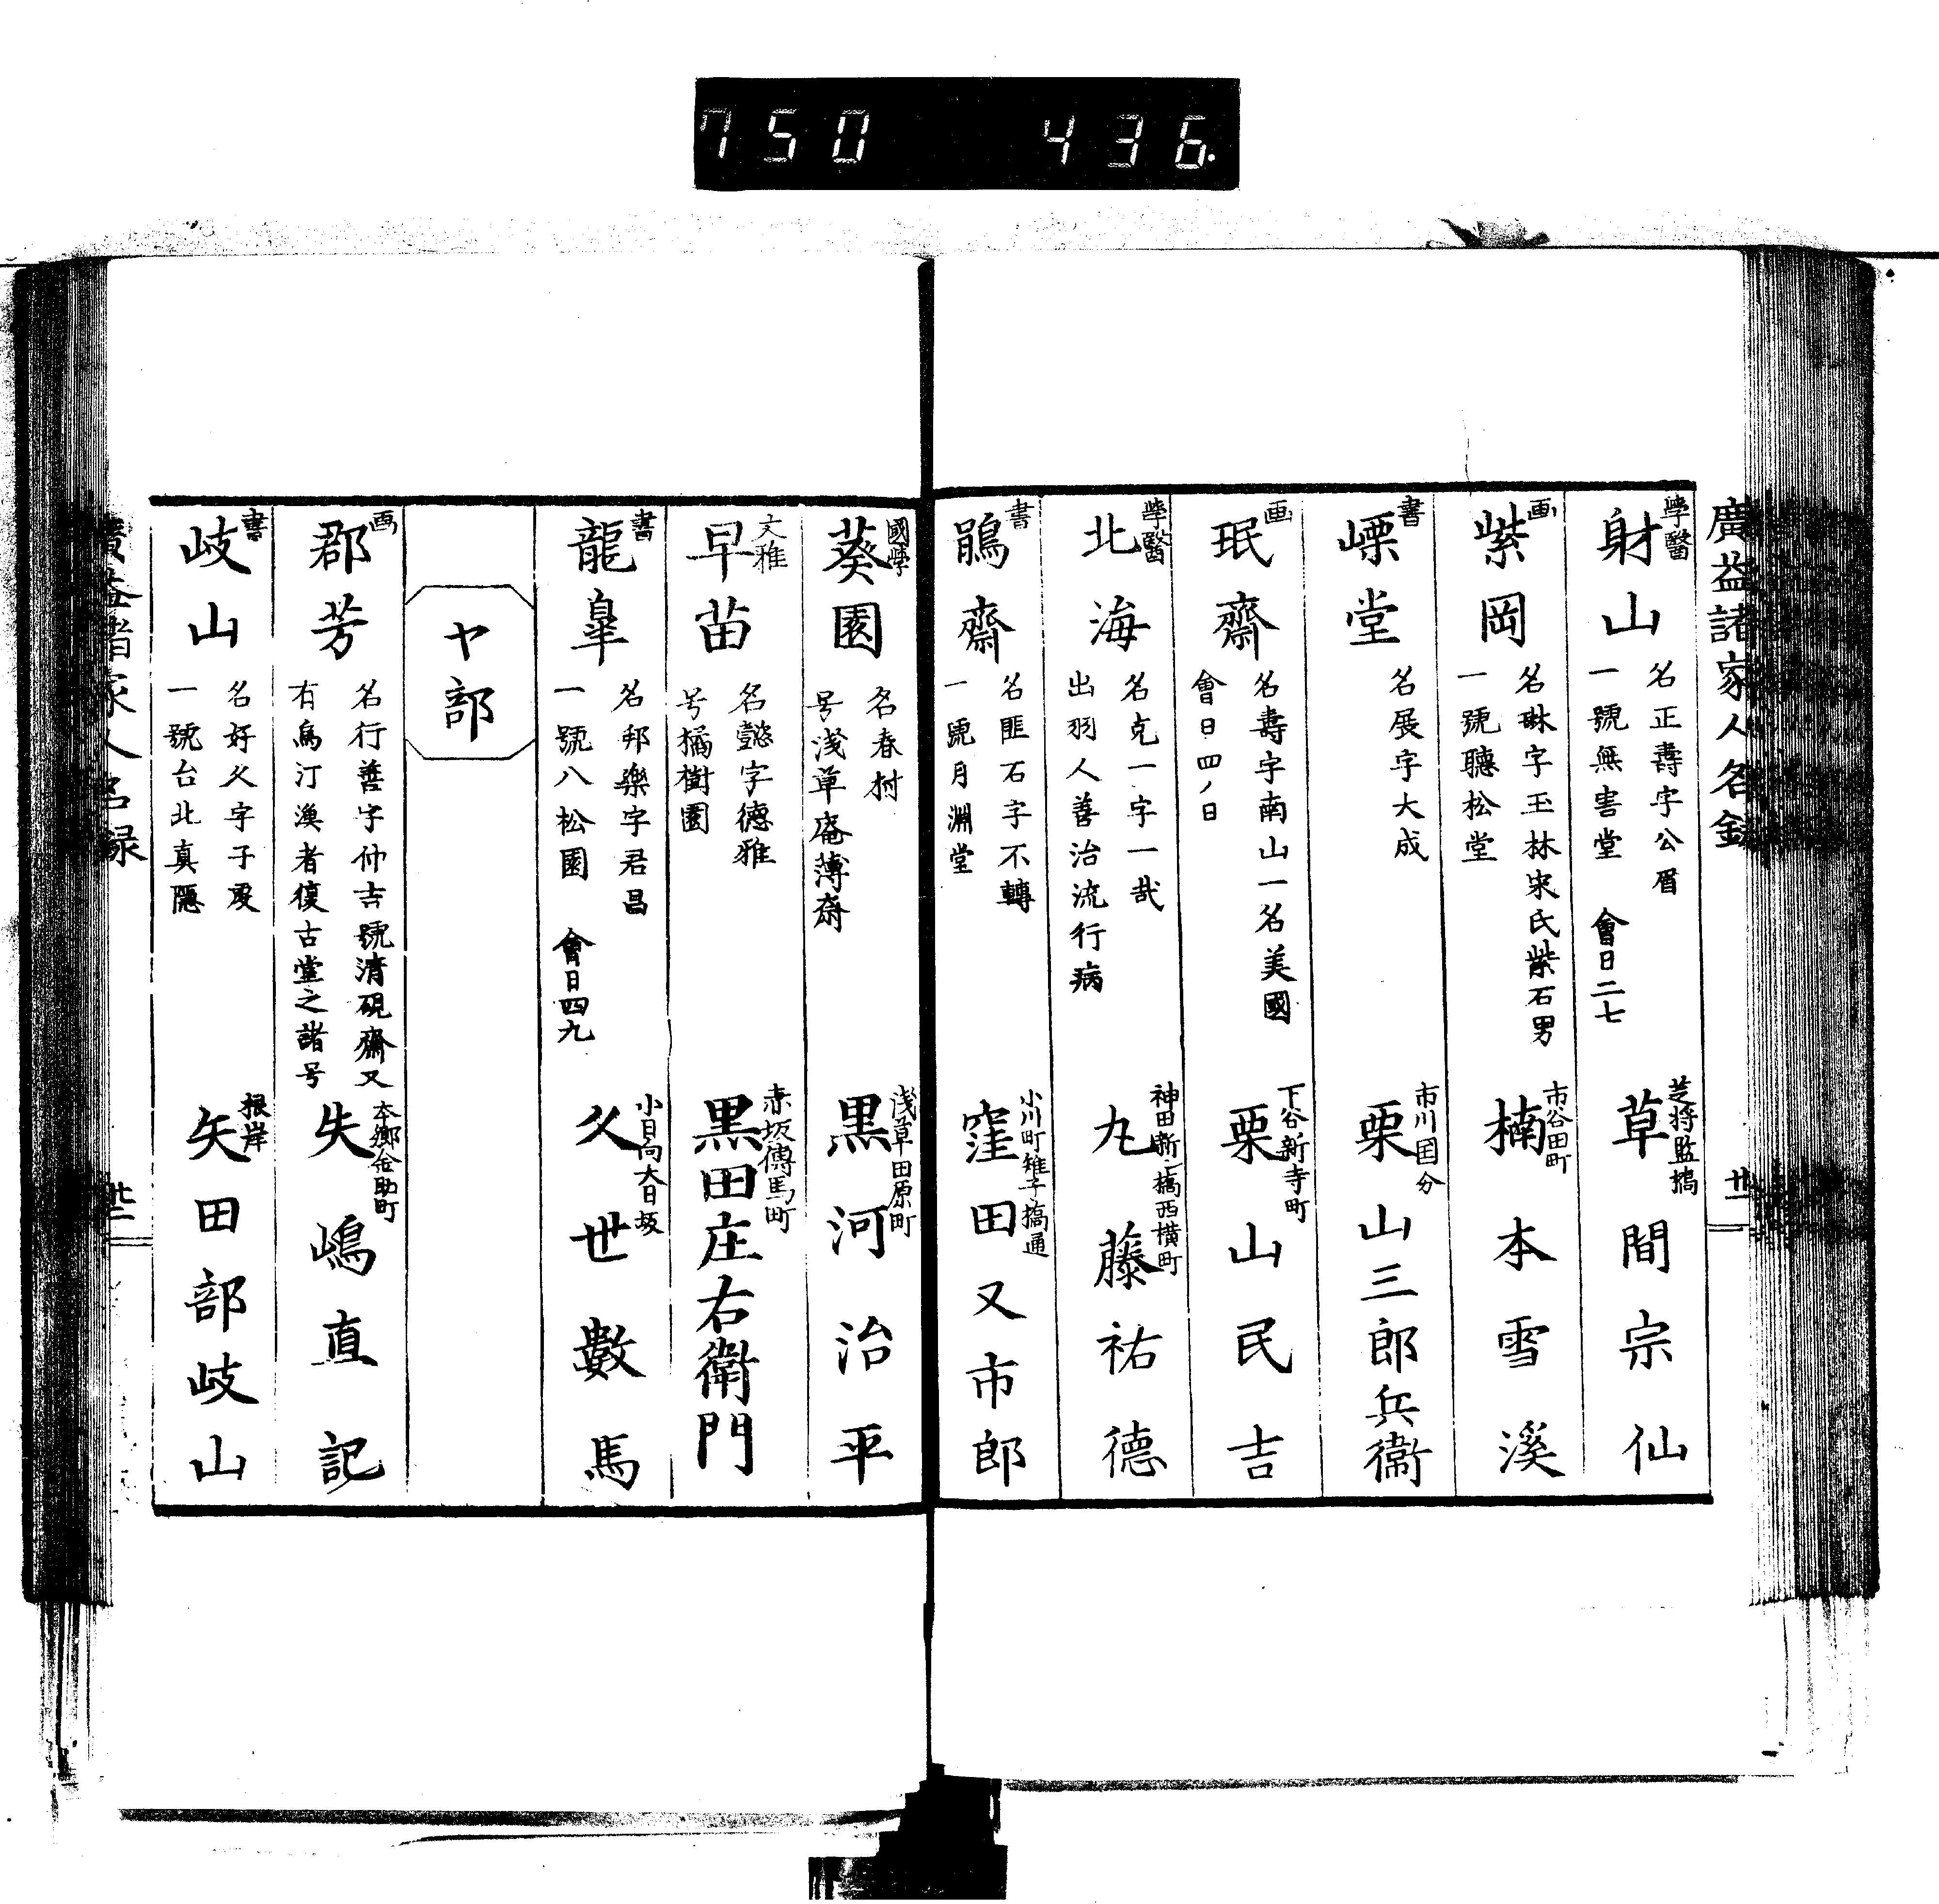 750 436.
廣益諸家人名録
學醫
射山
名正壽字公眉
一號無害堂 會日二七
芝将監橋
草間宗仙
画
紫岡
名琳字玉林宋氏紫石男
一號聽松堂
市谷田町
楠本雪溪
書
㟳堂
名展字大成
市川国分
栗山三郎兵衞
画
珉齋
名壽字南山一名美國
會日四ノ日
下谷新寺町
栗山民吉
學醫
北海
名克一字一哉
出羽人善治流行病
神田新シ橋西横町
九藤祐德
書
鵑齋
名匪石字不轉
一號月淵堂
小川町雉子橋通
窪田又市郎
廿一
國學
葵園
名春村
号浅草庵薄齋
浅草田原町
黒河治平
文雅
早苗
名懿字德雅
号橘樹園
赤坂傳馬町
黒田庄右衛門
書
龍皐
名邦樂字君昌
一號八松園 會日四九
小日向大日坂
久世數馬
ヤ部
画
郡芳
名行善字仲吉號清硯齋又
有烏汀漁者復古堂之諸号
本郷金助町
失嶋直記
書
岐山
名好久字子
一號台北真隱
根岸
矢田部岐山
廣益諸家人名録
廿二